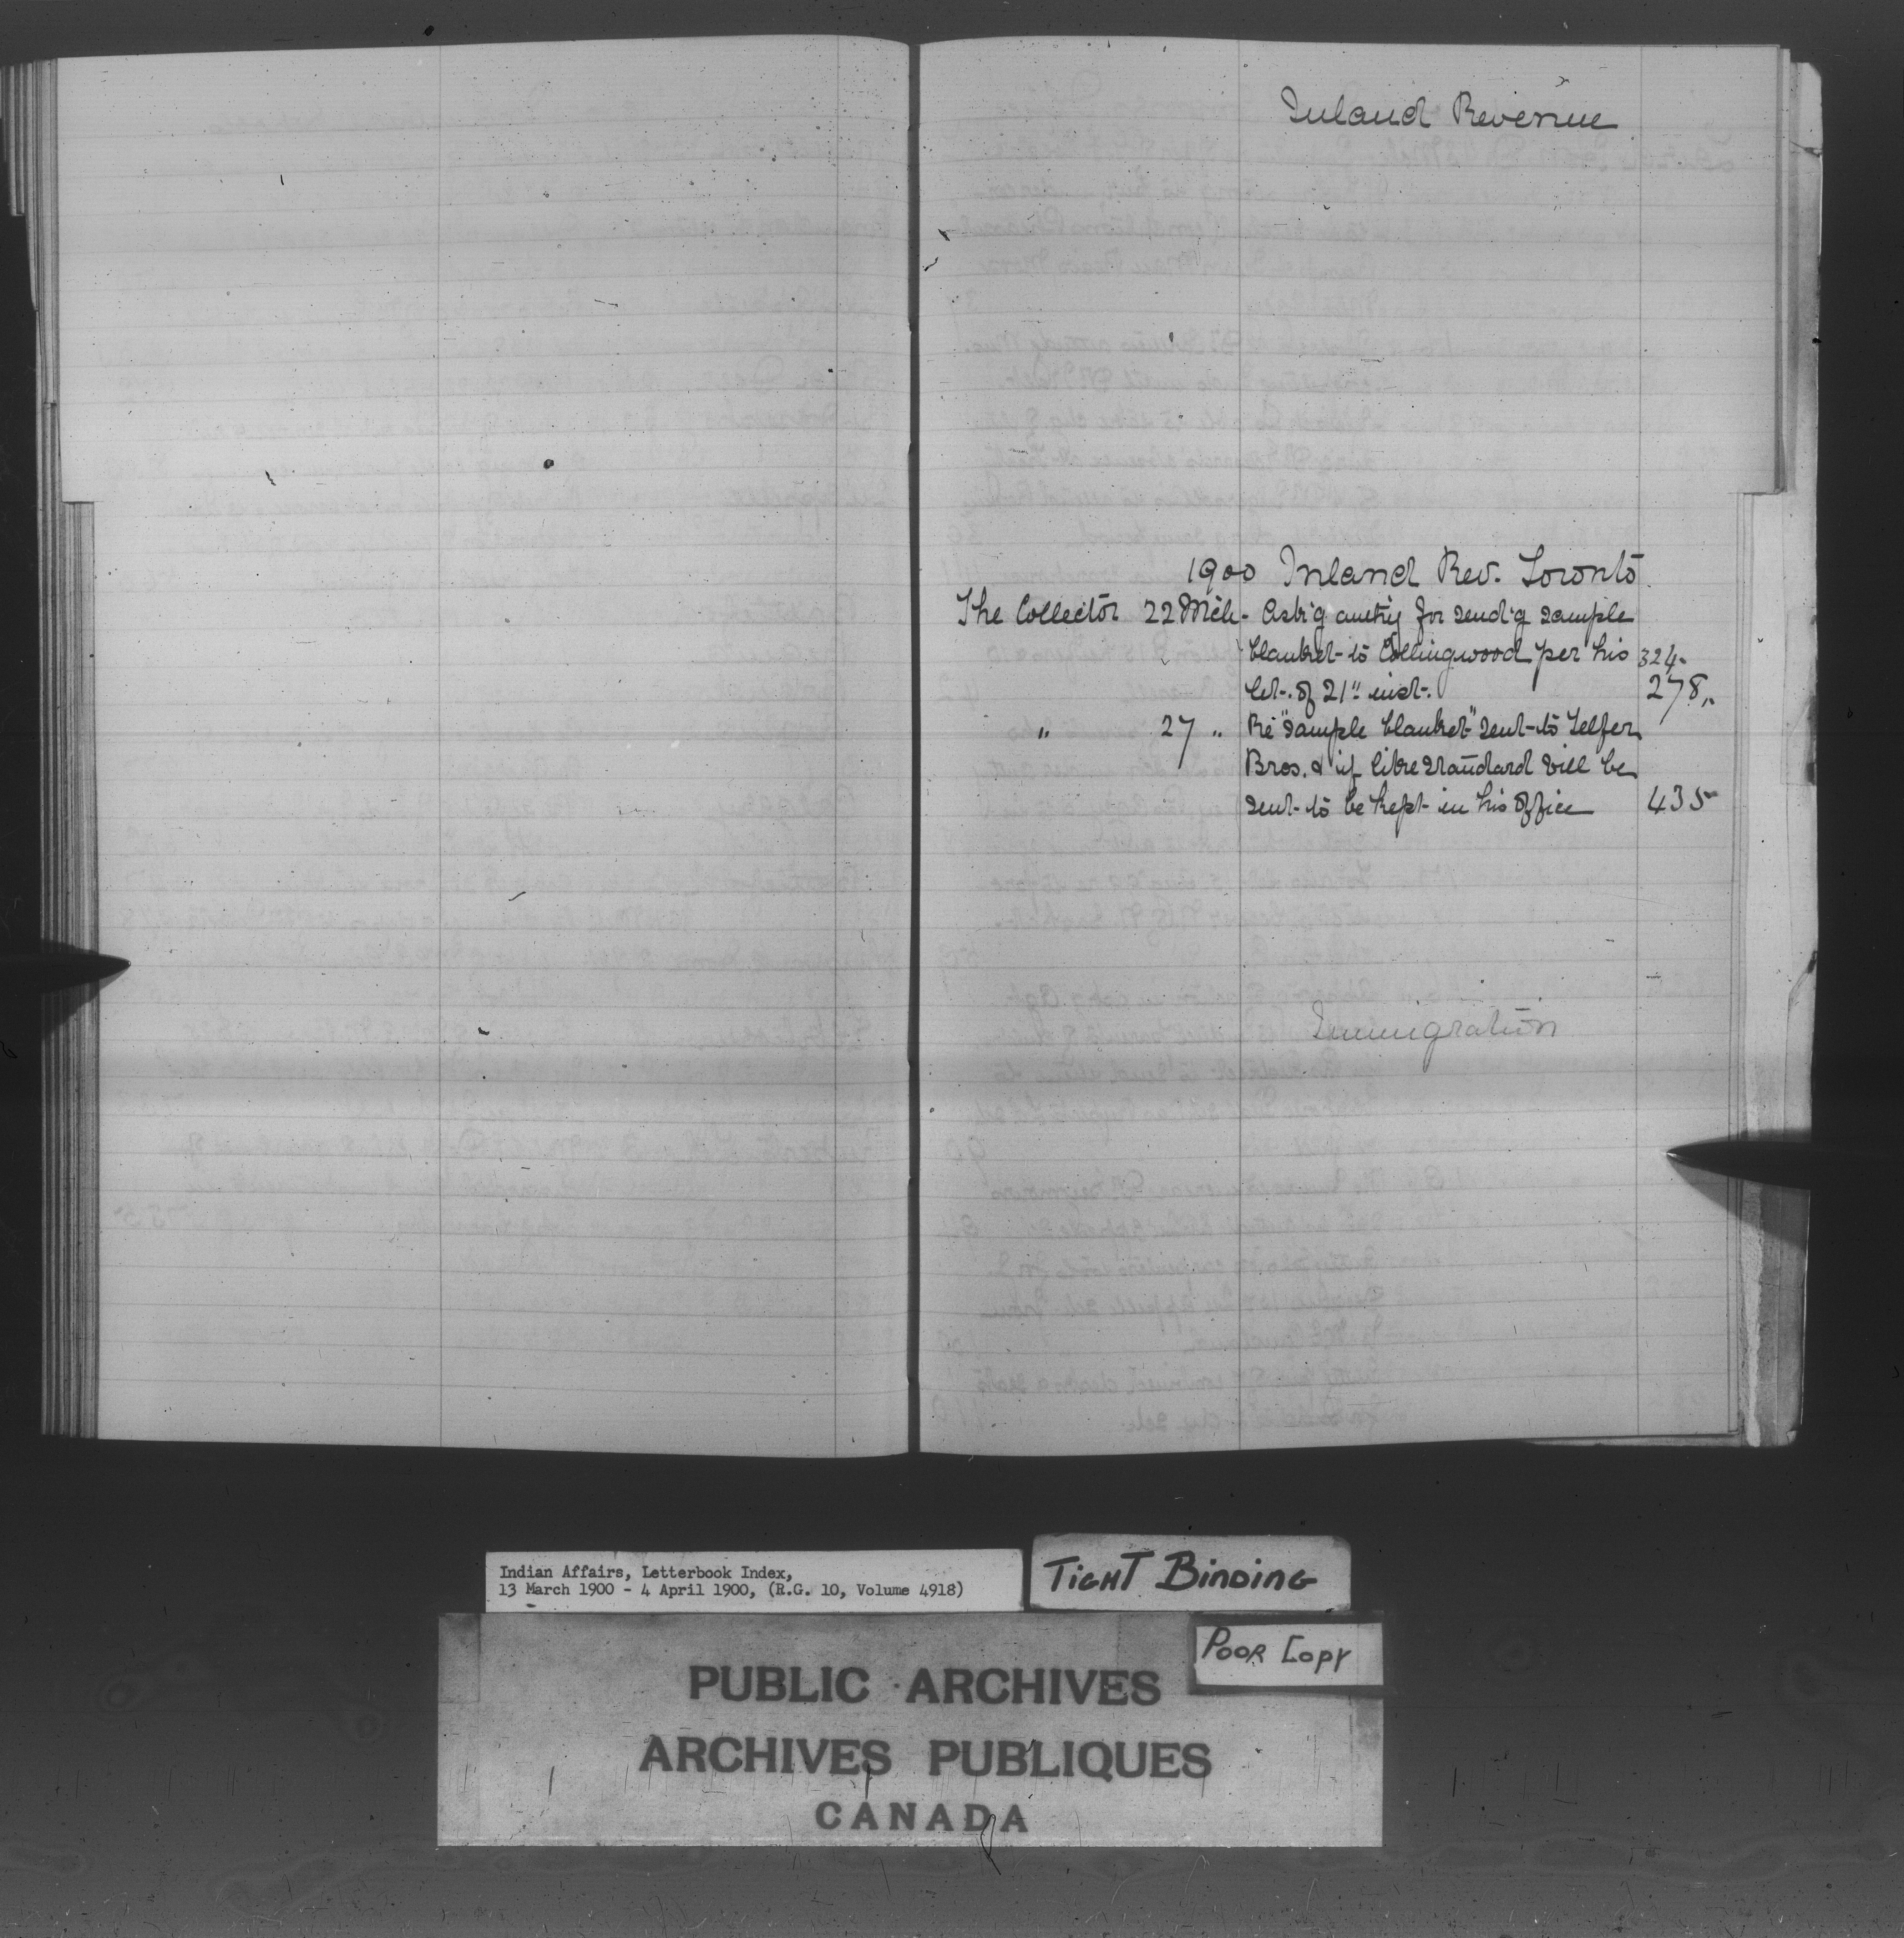 Inland Revenue
1900 Inland Rev. Toronto.
The Collector 22 Mch - Ask'g authy for send'g sample
blanket to Collingwood per his 324.
let. of 21" inst. 278"
" 27 " Re "sample blanket" sent to Telfer
Bros. & if like standard will be
sent to be kept in his office 435
Immigration
Indian Affairs, Letterbook Index,
13 March 1900 - 4 April 1900, (R.G. 10, Volume 4918)
TIGHT BINDING
POOR COPY
PUBLIC ARCHIVES
ARCHIVES PUBLIQUES
CANADA